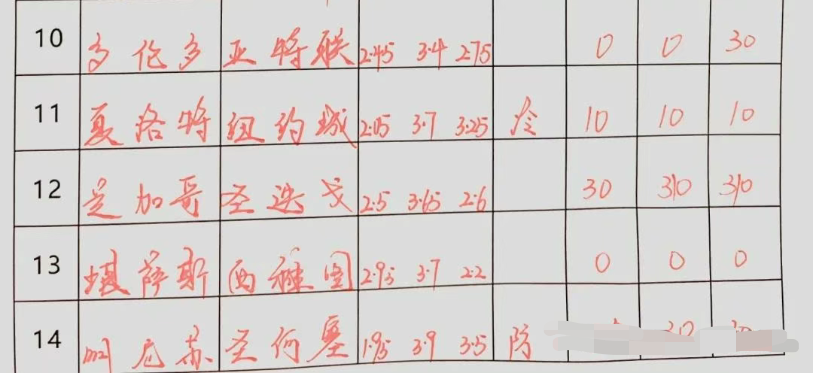 10 多伦多 亚特联 2.45 3.4 2.75 0 0 30
11 夏洛特 纽约城 2.05 3.7 3.25 冷 10 10 10
12 芝加哥 圣迭戈 2.5 3.65 2.6 30 310 310
13 堪萨斯 西雅图 2.95 3.7 2.2 0 0 0
14 明尼苏 圣何塞 1.95 3.9 3.5 防